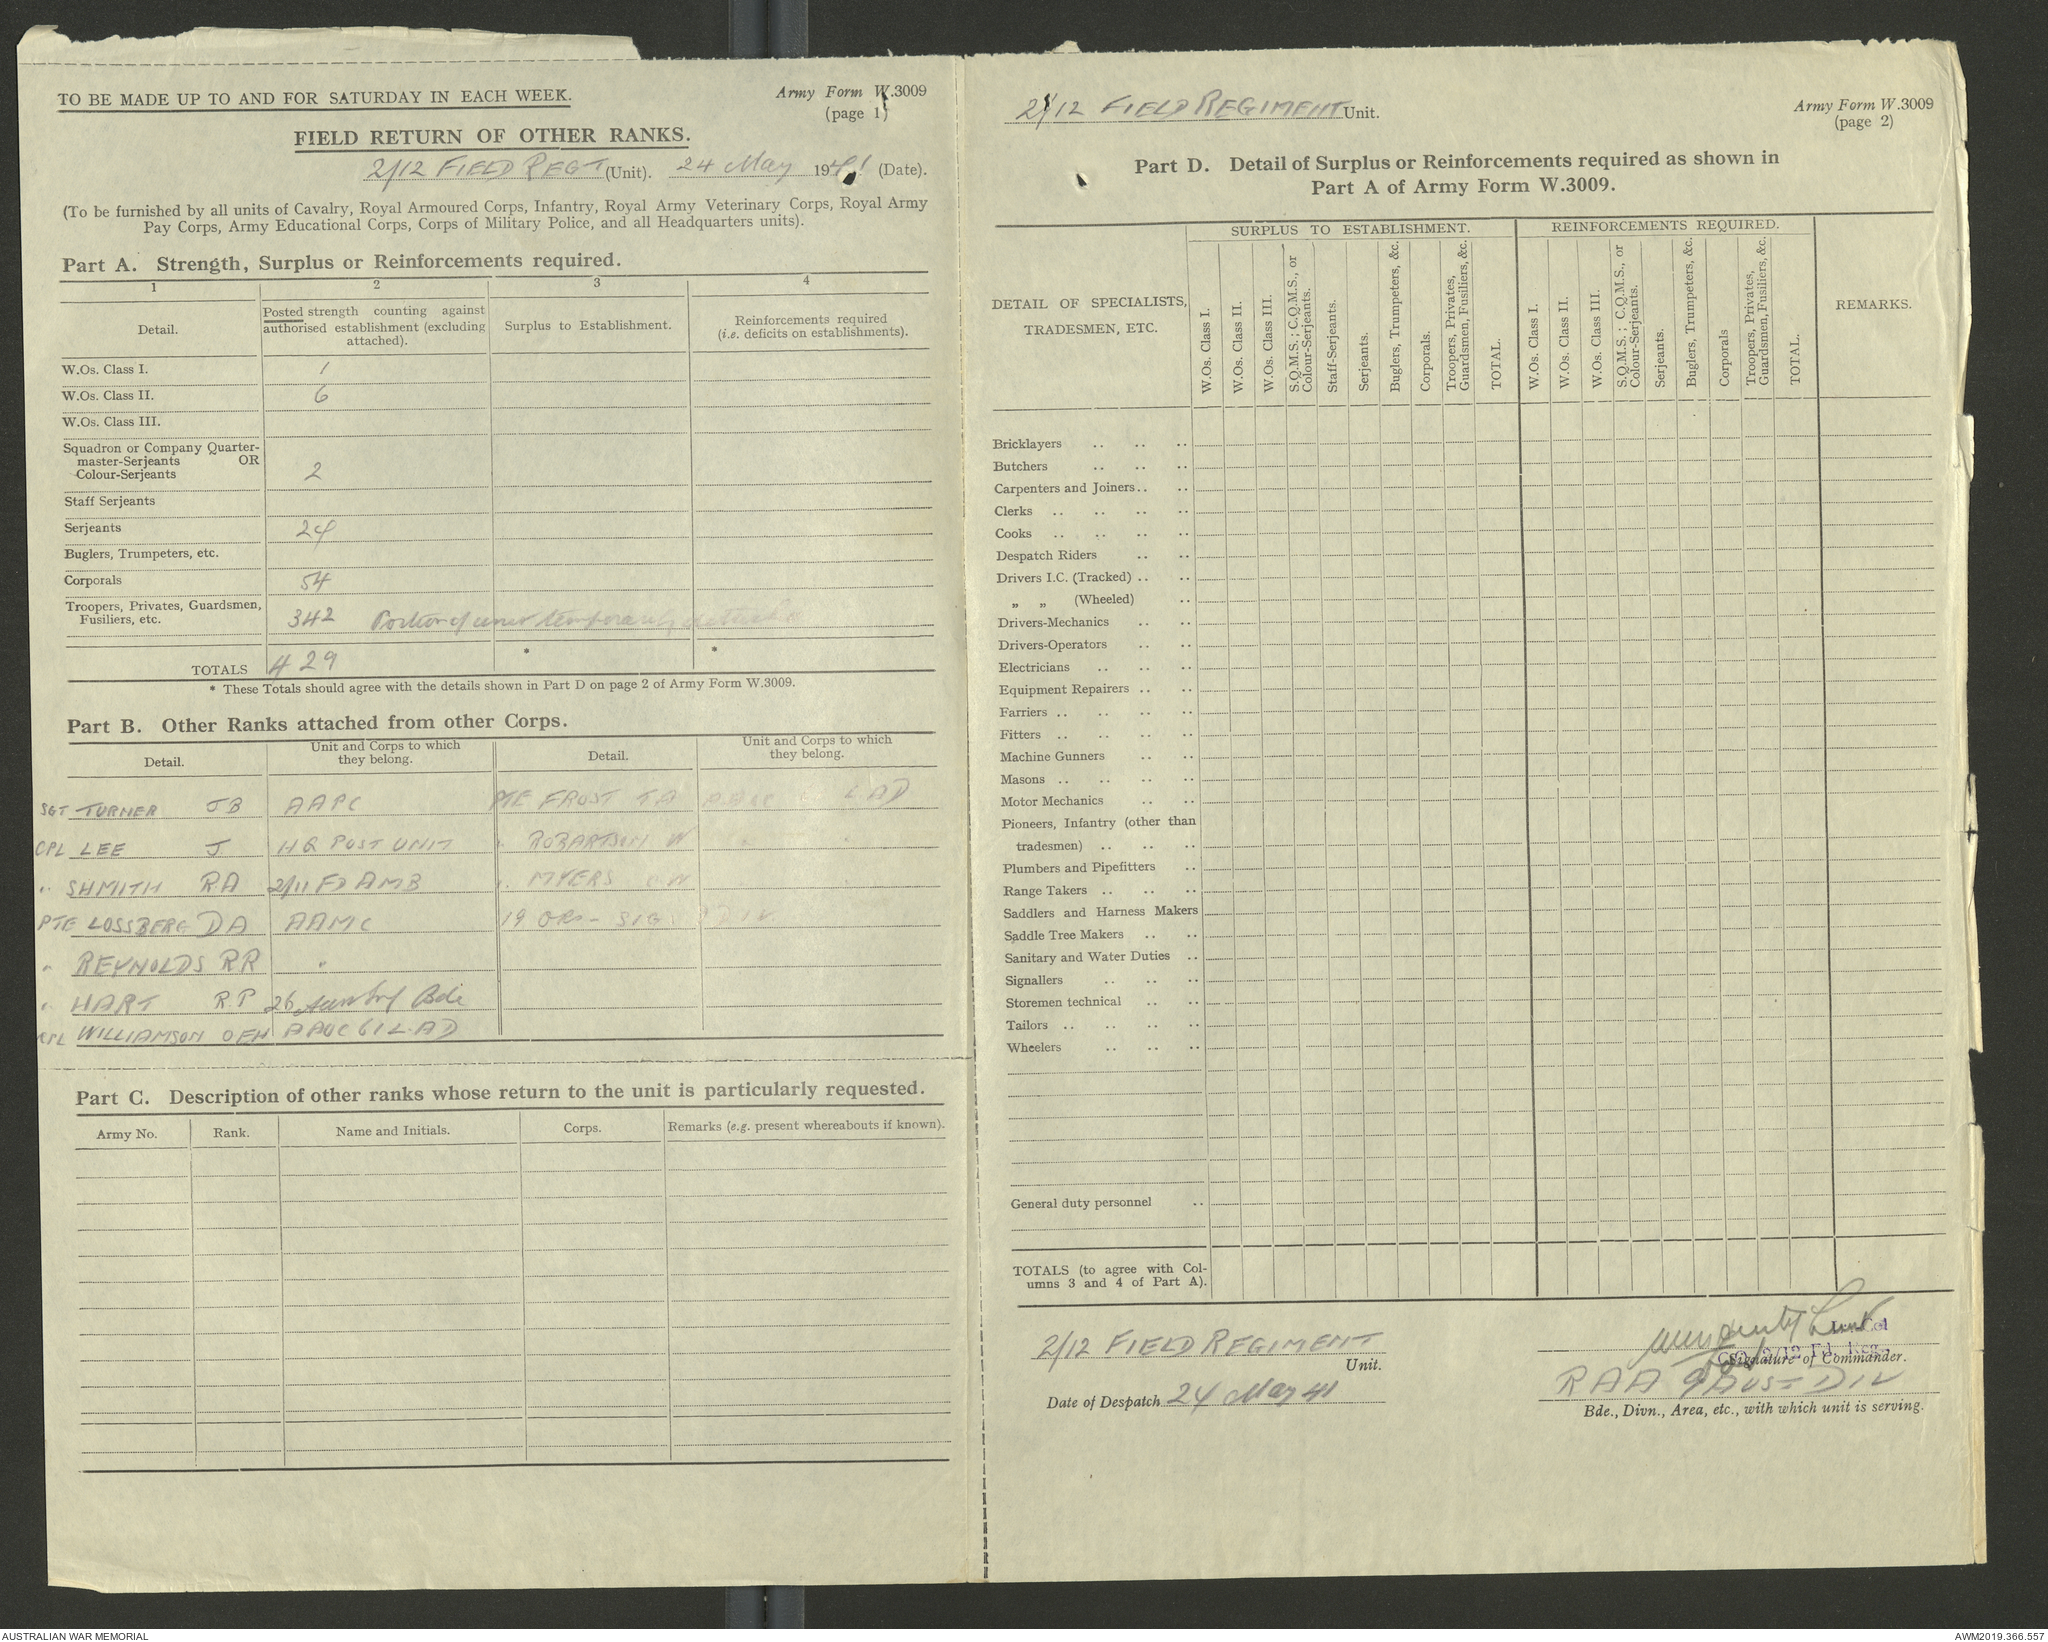 TO BE MADE UP TO AND FOR SATURDAY IN EACH WEEK.
Army Form W.3009
(page 1)
FIELD RETURN OF OTHER RANKS.
2/12 FIELD REGT (Unit). 24 May 1941 (Date).
(To be furnished by all units of Cavalry, Royal Armoured Corps, Infantry, Royal Army Veterinary Corps, Royal Army
Pay Corps, Army Educational Corps, Corps of Military Police, and all Headquarters units).
Part A. Strength, Surplus or Reinforcements required.
1 2 3 4
Detail.
Posted strength counting against
authorised establishment (excluding
attached).
Surplus to Establishment.
Reinforcements required
(i.e. deficits on establishments).
W.Os. Class I. 1
W.Os. Class II. 6
W.Os. Class III.
Squadron or Company Quarter-
master-Serjeants OR
Colour-Serjeants 2
Staff Serjeants
Serjeants 24
Buglers, Trumpeters, etc.
Corporals 54
Troopers, Privates, Guardsmen,
Fusiliers, etc. 342 Portion of unit temporarily
TOTALS 429 * *
* These Totals should agree with the details shown in Part D on page 2 of Army Form W.3009.
Part B. Other Ranks attached from other Corps.
Detail.
Unit and Corps to which
they belong.
Detail.
Unit and Corps to which
they belong.
SGT TURNER JB AAPC PTE FROST TA LAD
CPL LEE J HQ POST UNIT " ROBARTSON W
" SHMITH RA 2/11 FD AMB " MYERS
PTE LOSSBERG DA AAMC 19 ORs - SIG DIV
" REYNOLDS RR "
" HART R.P 26 Bde
CPL WILLIAMSON OEH AAOC 61 LAD
Part C. Description of other ranks whose return to the unit is particularly requested.
Army No. Rank. Name and Initials. Corps. Remarks (e.g. present whereabouts if known).
2/12 FIELD REGIMENT Unit.
Army Form W.3009
(page 2)
Part D. Detail of Surplus or Reinforcements required as shown in
Part A of Army Form W.3009.
DETAIL OF SPECIALISTS,
TRADESMEN, ETC.
SURPLUS TO ESTABLISHMENT.
W.Os. Class I.
W.Os. Class II.
W.Os. Class III.
S.Q.M.S.; C.Q.M.S., or
Colour-Serjeants.
Staff-Serjeants.
Serjeants.
Buglers, Trumpeters, &c.
Corporals.
Troopers, Privates,
Guardsmen, Fusiliers, &c.
TOTAL.
REINFORCEMENTS REQUIRED.
W.Os. Class I.
W.Os. Class II.
W.Os. Class III.
S.Q.M.S.; C.Q.M.S., or
Colour-Serjeants.
Serjeants.
Buglers, Trumpeters, &c.
Corporals
Troopers, Privates,
Guardsmen, Fusiliers, &c.
TOTAL.
REMARKS.
Bricklayers .. .. ..
Butchers .. .. ..
Carpenters and Joiners .. ..
Clerks .. .. .. ..
Cooks .. .. .. ..
Despatch Riders .. ..
Drivers I.C. (Tracked) .. ..
„ „ (Wheeled) ..
Drivers-Mechanics .. ..
Drivers-Operators .. ..
Electricians .. .. ..
Equipment Repairers .. ..
Farriers .. .. .. ..
Fitters .. .. .. ..
Machine Gunners .. ..
Masons .. .. .. ..
Motor Mechanics .. ..
Pioneers, Infantry (other than
tradesmen) .. .. ..
Plumbers and Pipefitters ..
Range Takers .. .. ..
Saddlers and Harness Makers
Saddle Tree Makers .. ..
Sanitary and Water Duties ..
Signallers .. .. ..
Storemen technical .. ..
Tailors .. .. .. ..
Wheelers .. .. ..
General duty personnel ..
TOTALS (to agree with Col-
umns 3 and 4 of Part A).
2/12 FIELD REGIMENT
Unit.
Date of Despatch 24 May 41
Signature of Commander.
RAA 9 AUST DIV
Bde., Divn., Area, etc., with which unit is serving.
AUSTRALIAN WAR MEMORIAL
AWM2019.366.557